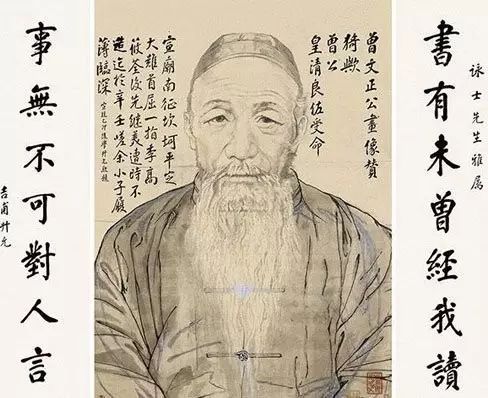 詠士先生雅屬
書有未曾經我讀
曾文正公畫像贊
猗歟
曾公
皇清良佐受命
宣廟南征坎坷平定
大難首屈一指李高
筱荃後先繼美遭時不
造迄於辛壬嗟余小子履
薄臨深
後學升允敬題
事無不可對人言
吉甫升允